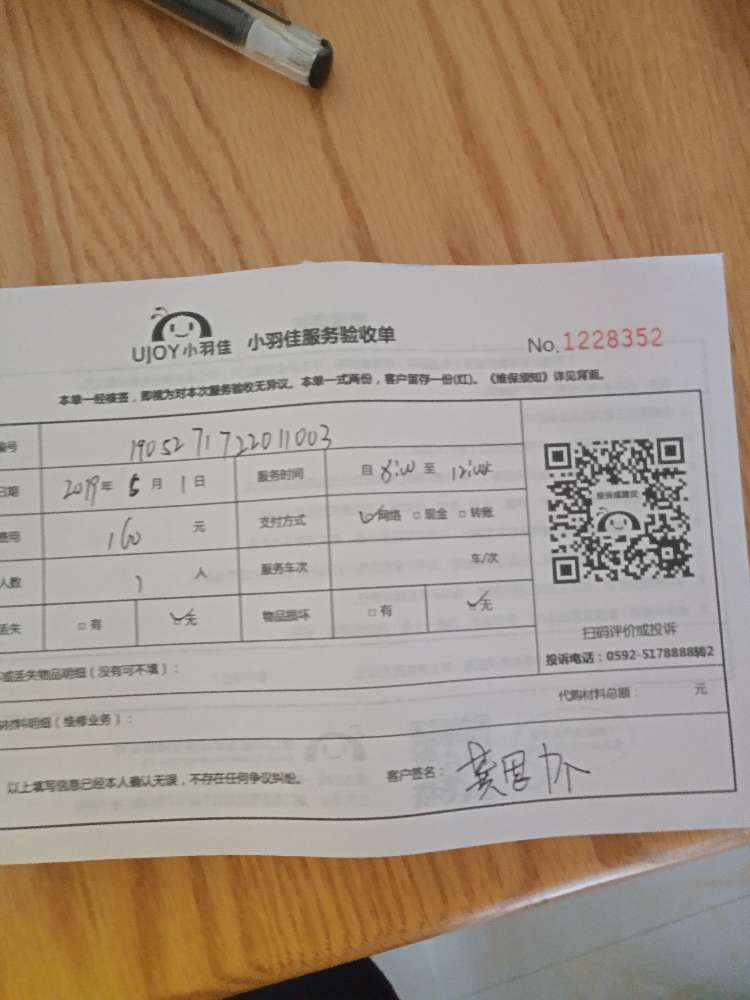 UJOY小羽佳 小羽佳服务验收单 No.1228352
本单一经核签，即视为对本次服务验收无异议。本单一式两份，客户留存一份(红)。《维保须知》详见背面。
编号 1905271722011003
日期 2019年 5月 1日 服务时间 自 8:00 至 12:00
费用 160 元 支付方式 网络 □现金 □转账
人数 1 人 服务车次 车/次
丢失 □有 无 物品损坏 □有 无
扫码评价或投诉
投诉电话：0592-5178888转2
或丢失物品明细（没有可不填）：
材料明细（维修业务）： 代购材料总额： 元
以上填写信息已经本人确认无误，不存在任何争议纠纷。 客户签名：